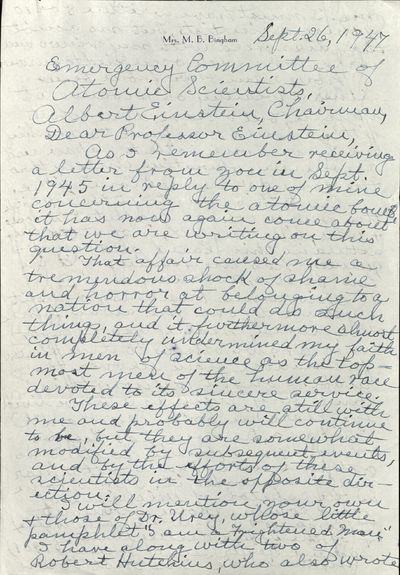 Mrs. M. E. Bingham
Sept. 26, 1947
Emergency Committee of
Atomic Scientists,
Albert Einstein, Chairman,
Dear Professor Einstein,
As I remember receiving
a letter from you in Sept.
1945 in reply to one of mine
concerning the atomic bomb,
it has now again come about
that we are writing on this
question.
That affair caused me a
tremendous shock of shame
and horror at belonging to a
nation that could do such
things, and it furthermore almost
completely undermined my faith
in men of science as the top-
most men of the human race
devoted to its sincere service.
These effects are still with
me and probably will continue
to be, but they are somewhat
modified by subsequent events,
and by the efforts of these
scientists in the opposite dir-
ection.
I will mention your own
& those of Dr. Urey, whose little
pamphlet "I am a Frightened Man"
I have along with two of
Robert Hutchins, who also wrote